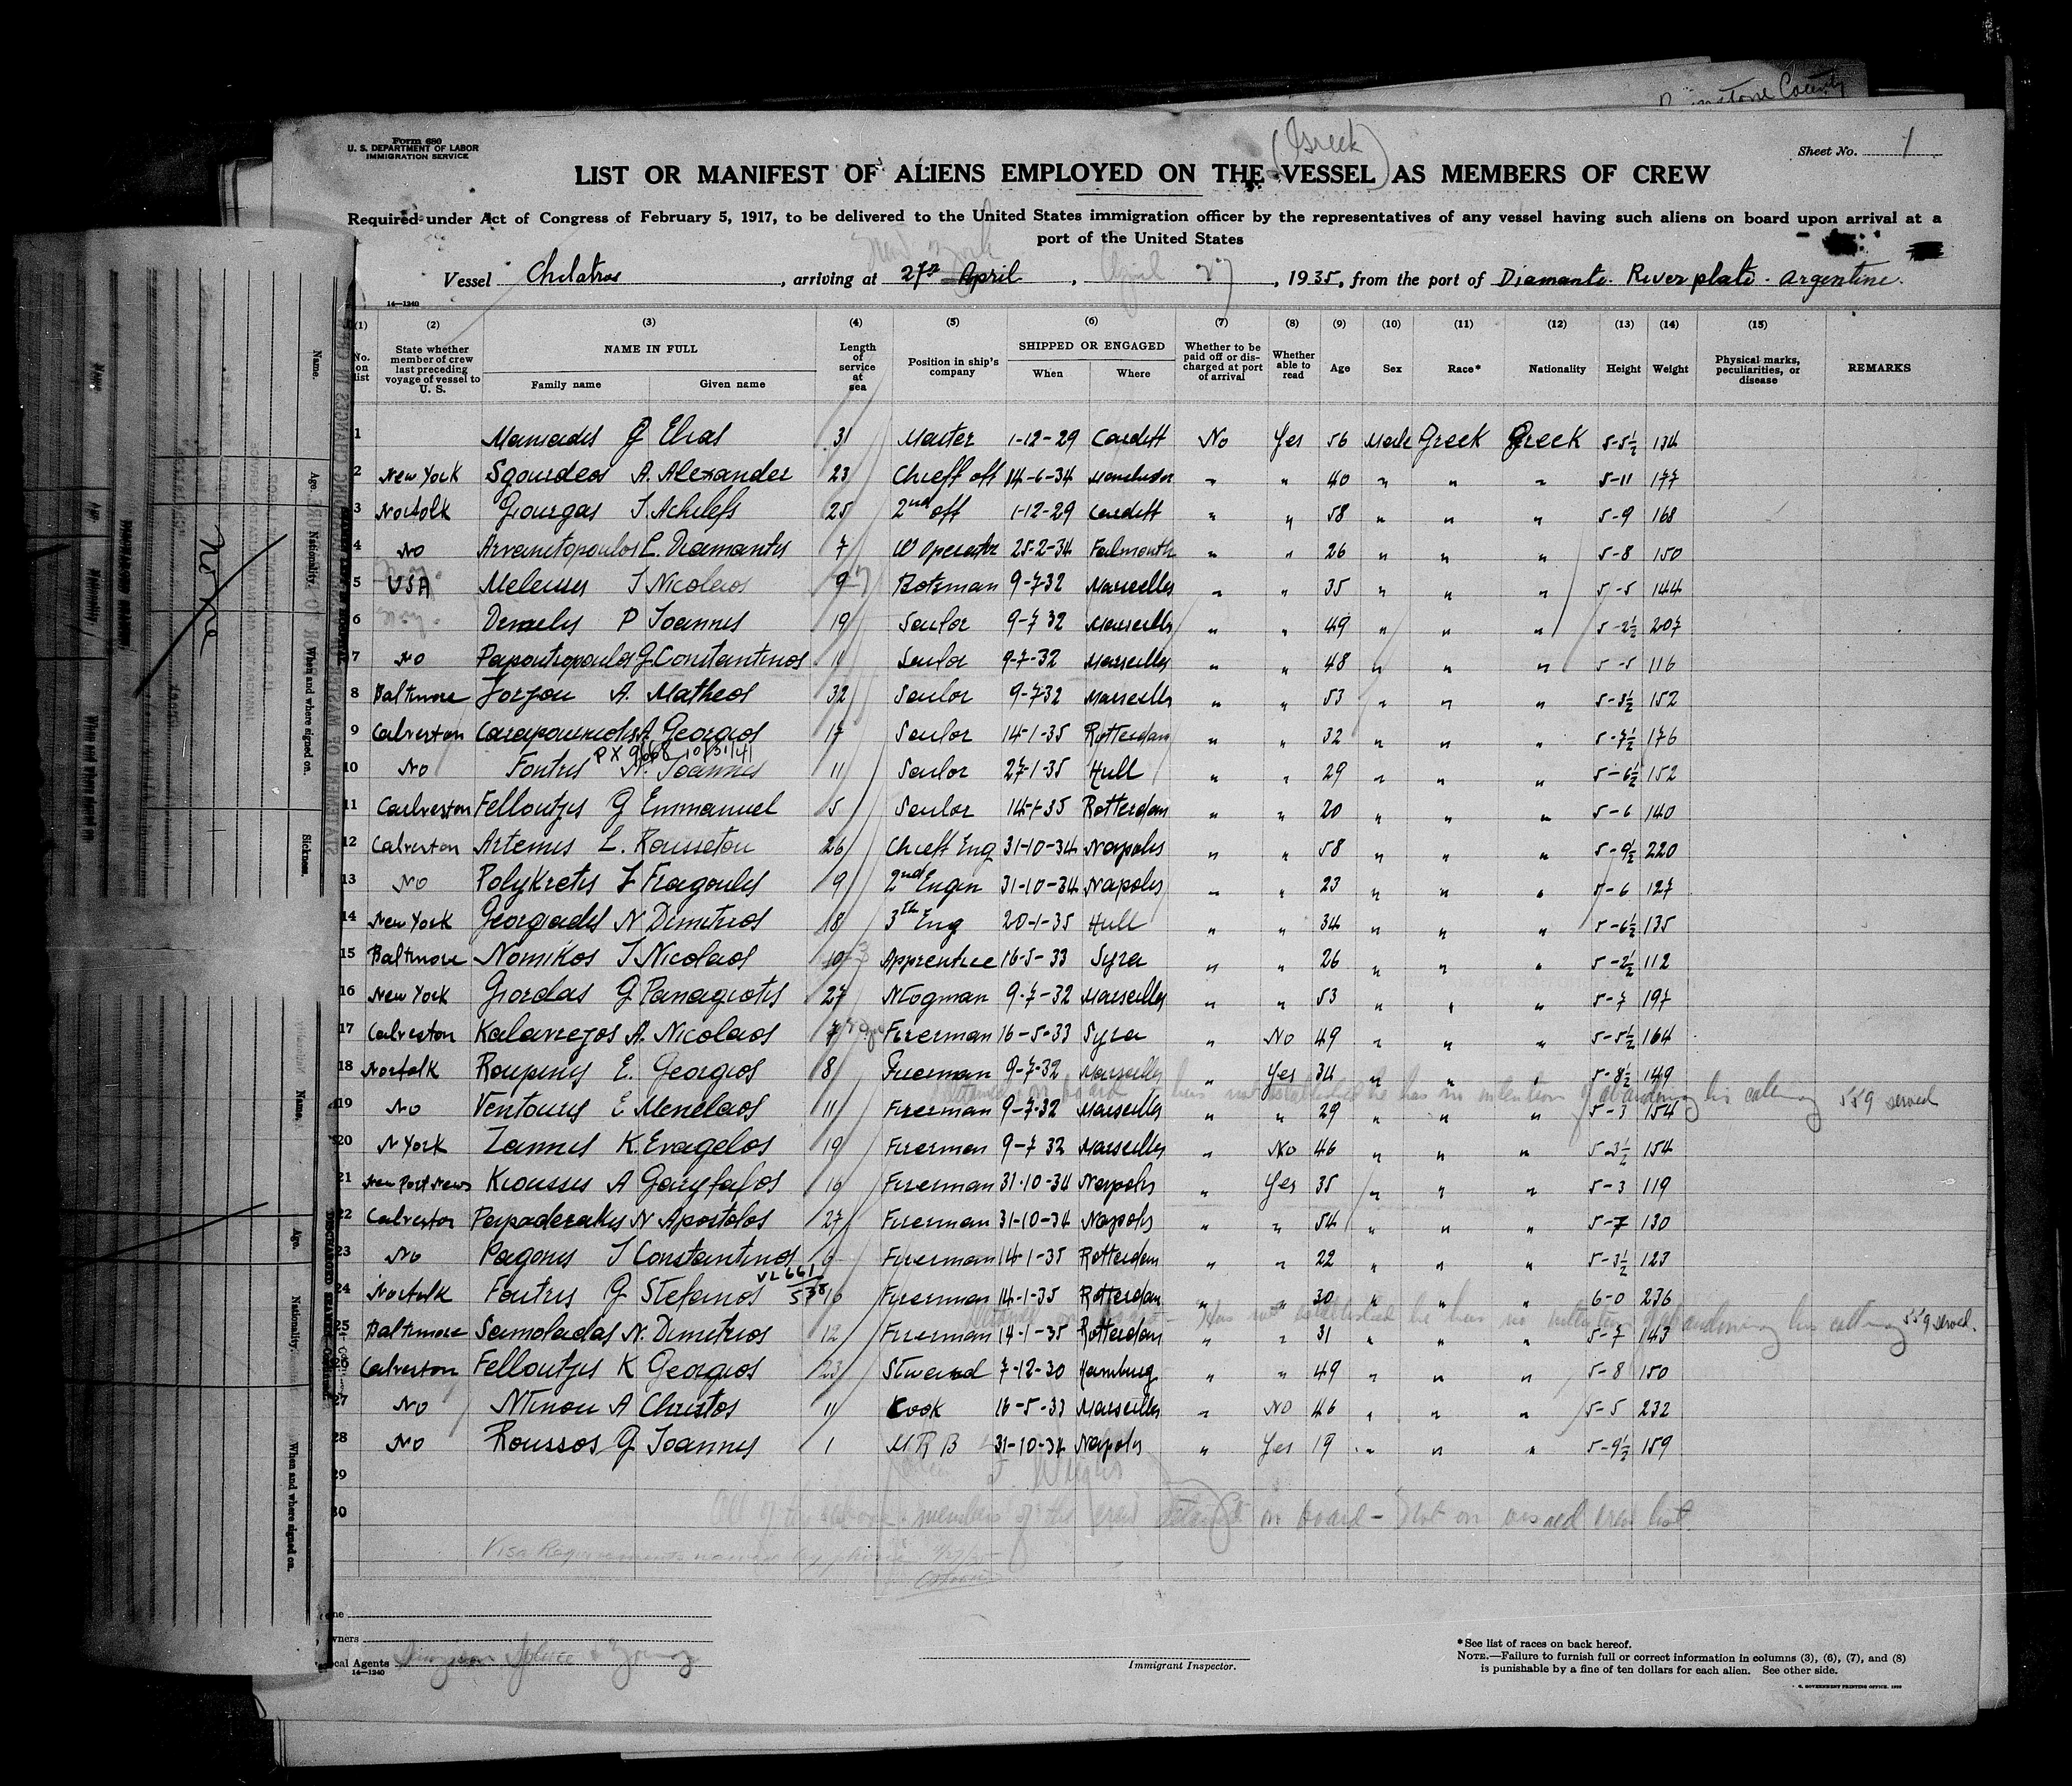 Form 680
U. S. DEPARTMENT OF LABOR
IMMIGRATION SERVICE
(Greek)
Sheet No. 1
LIST OR MANIFEST OF ALIENS EMPLOYED ON THE VESSEL AS MEMBERS OF CREW
Required under Act of Congress of February 5, 1917, to be delivered to the United States immigration officer by the representatives of any vessel having such aliens on board upon arrival at a
port of the United States
New York
Vessel Chelatros, arriving at 27th April, April 27, 1935, from the port of Diamante River plate - Argentine.
14—1240
(1) (2) (3) (4) (5) (6) (7) (8) (9) (10) (11) (12) (13) (14) (15)
No. on list State whether member of crew last preceding voyage of vessel to U. S. NAME IN FULL Family name Given name Length of service at sea Position in ship's company SHIPPED OR ENGAGED When Where Whether to be paid off or discharged at port of arrival Whether able to read Age Sex Race* Nationality Height Weight Physical marks, peculiarities, or disease REMARKS
1 Mamades G Elias 31 Master 1-12-29 Cardiff No Yes 56 Male Greek Greek 5-5½ 134
2 New York Sgourdeos A. Alexander 23 Chieff off 14-6-34 " " 40 " " " 5-11 177
3 Norfolk Giourgas J. Achilefs 25 2nd off 1-12-29 Cardiff " " 58 " " " 5-9 168
4 No Arvanitopoulos L. Diamantis 7 W Operator 25-2-34 Falmouth " " 26 " " " 5-8 150
5 USA Melenis J Nicolaos 9 Botsman 9-7-32 Marseilles " " 35 " " " 5-5 144
6 P Joannis 19 Seilor 9-7 32 Marseilles " " 49 " " " 5-2½ 207
7 No Papoutsopoulos G. Constantinos 11 Seilor 9-7-32 Marseilles " " 48 " " " 5-5 116
8 Baltimore A. Matheos 32 Seilor 9-7-32 Marseilles " " 53 " " " 5-3½ 152
9 Calveston A. Georgios 17 Seilor 14-1-35 Rotterdam " " 32 " " " 5-7½ 176
PX 9668 10/31/41
10 No Foutris N. Joannis 11 Seilor 27-1-35 Hull " " 29 " " " 5-6½ 152
11 Caulveston Felloutzis G Emmanuel 5 Seilor 14-1-35 Rotterdam " " 20 " " " 5-6 140
12 Calveston Artemis L. Roussetou 26 Chieff Eng 31-10-34 Napolis " " 58 " " " 5-9½ 220
13 No Polykretis J Fragoulis 9 2nd Engin 31-10-34 Napolis " " 23 " " " 5-6 127
14 New York Georgiadis N Dimitrios 18 3th Eng 20-1-35 Hull " " 34 " " " 5-6½ 135
15 Baltimore Nomikos J Nicolaos 10 3 Apprentice 16-5-33 Syra " " 26 " " " 5-2½ 112
16 New York Giordas G Panagiotis 27 Ntogman 9-7-32 Marseilles " " 53 " " " 5-7 197
17 Calveston Kalavrezos A. Nicolaos 7 Fireman 16-5-33 Syra " No 49 " " " 5-5½ 164
18 Norfolk Roupinis E. Georgios 8 Fireman 9-7-32 Marseilles " Yes 34 " " " 5-8½ 149
Detained on board has not established he has no intention of abandoning his calling 559 served
19 No Ventouris E Menelaos 11 Fireman 9-7-32 Marseilles " " 29 " " " 5-3 154
20 N York Zannis K. Evagelos 19 Fireman 9-7 32 Marseilles " No 46 " " " 5-3½ 154
21 New Port News Kioussis A Garyfalos 16 Fireman 31-10-34 Napolis " Yes 35 " " " 5-3 119
22 Calveston Papaderakis N Apostolos 27 Fireman 31-10-34 Napolis " " 54 " " " 5-7 130
23 No Pagonis J Constantinos 9 Fireman 14-1-35 Rotterdam " " 22 " " " 5-3½ 123
VL 661
538
24 Norfolk Foutris G Stefanos 16 Fireman 14-1-35 Rotterdam " " 30 " " " 6-0 236
Detained on board - Has not established he has no intention of abandoning his calling 559 served.
25 Baltimore Samoladas N. Dimitrios 12 Fireman 14-1-35 Rotterdam " " 31 " " " 5-7 143
26 Calveston Felloutzis K Georgios 23 Stweard 7-12-30 Hamburg " " 49 " " " 5-8 150
27 No Ntinou A Christos 11 Cook 16-5-33 Marseilles " No 46 " " " 5-5 232
28 No Roussos G Joannis 1 M R B 31-10-34 Napolis " Yes 19 " " " 5-9½ 159
29
30
All of the above members of the crew detained on board - Not on visaed crew list.
Visa Requirements waived
Owners
Local Agents Simpson Spence & Young
14—1240
Immigrant Inspector.
*See list of races on back hereof.
NOTE.—Failure to furnish full or correct information in columns (3), (6), (7), and (8)
is punishable by a fine of ten dollars for each alien. See other side.
None
Name.
Age.
Nationality.
When and where signed on.
Sickness.
Name.
Age.
Nationality.
When and where signed on.